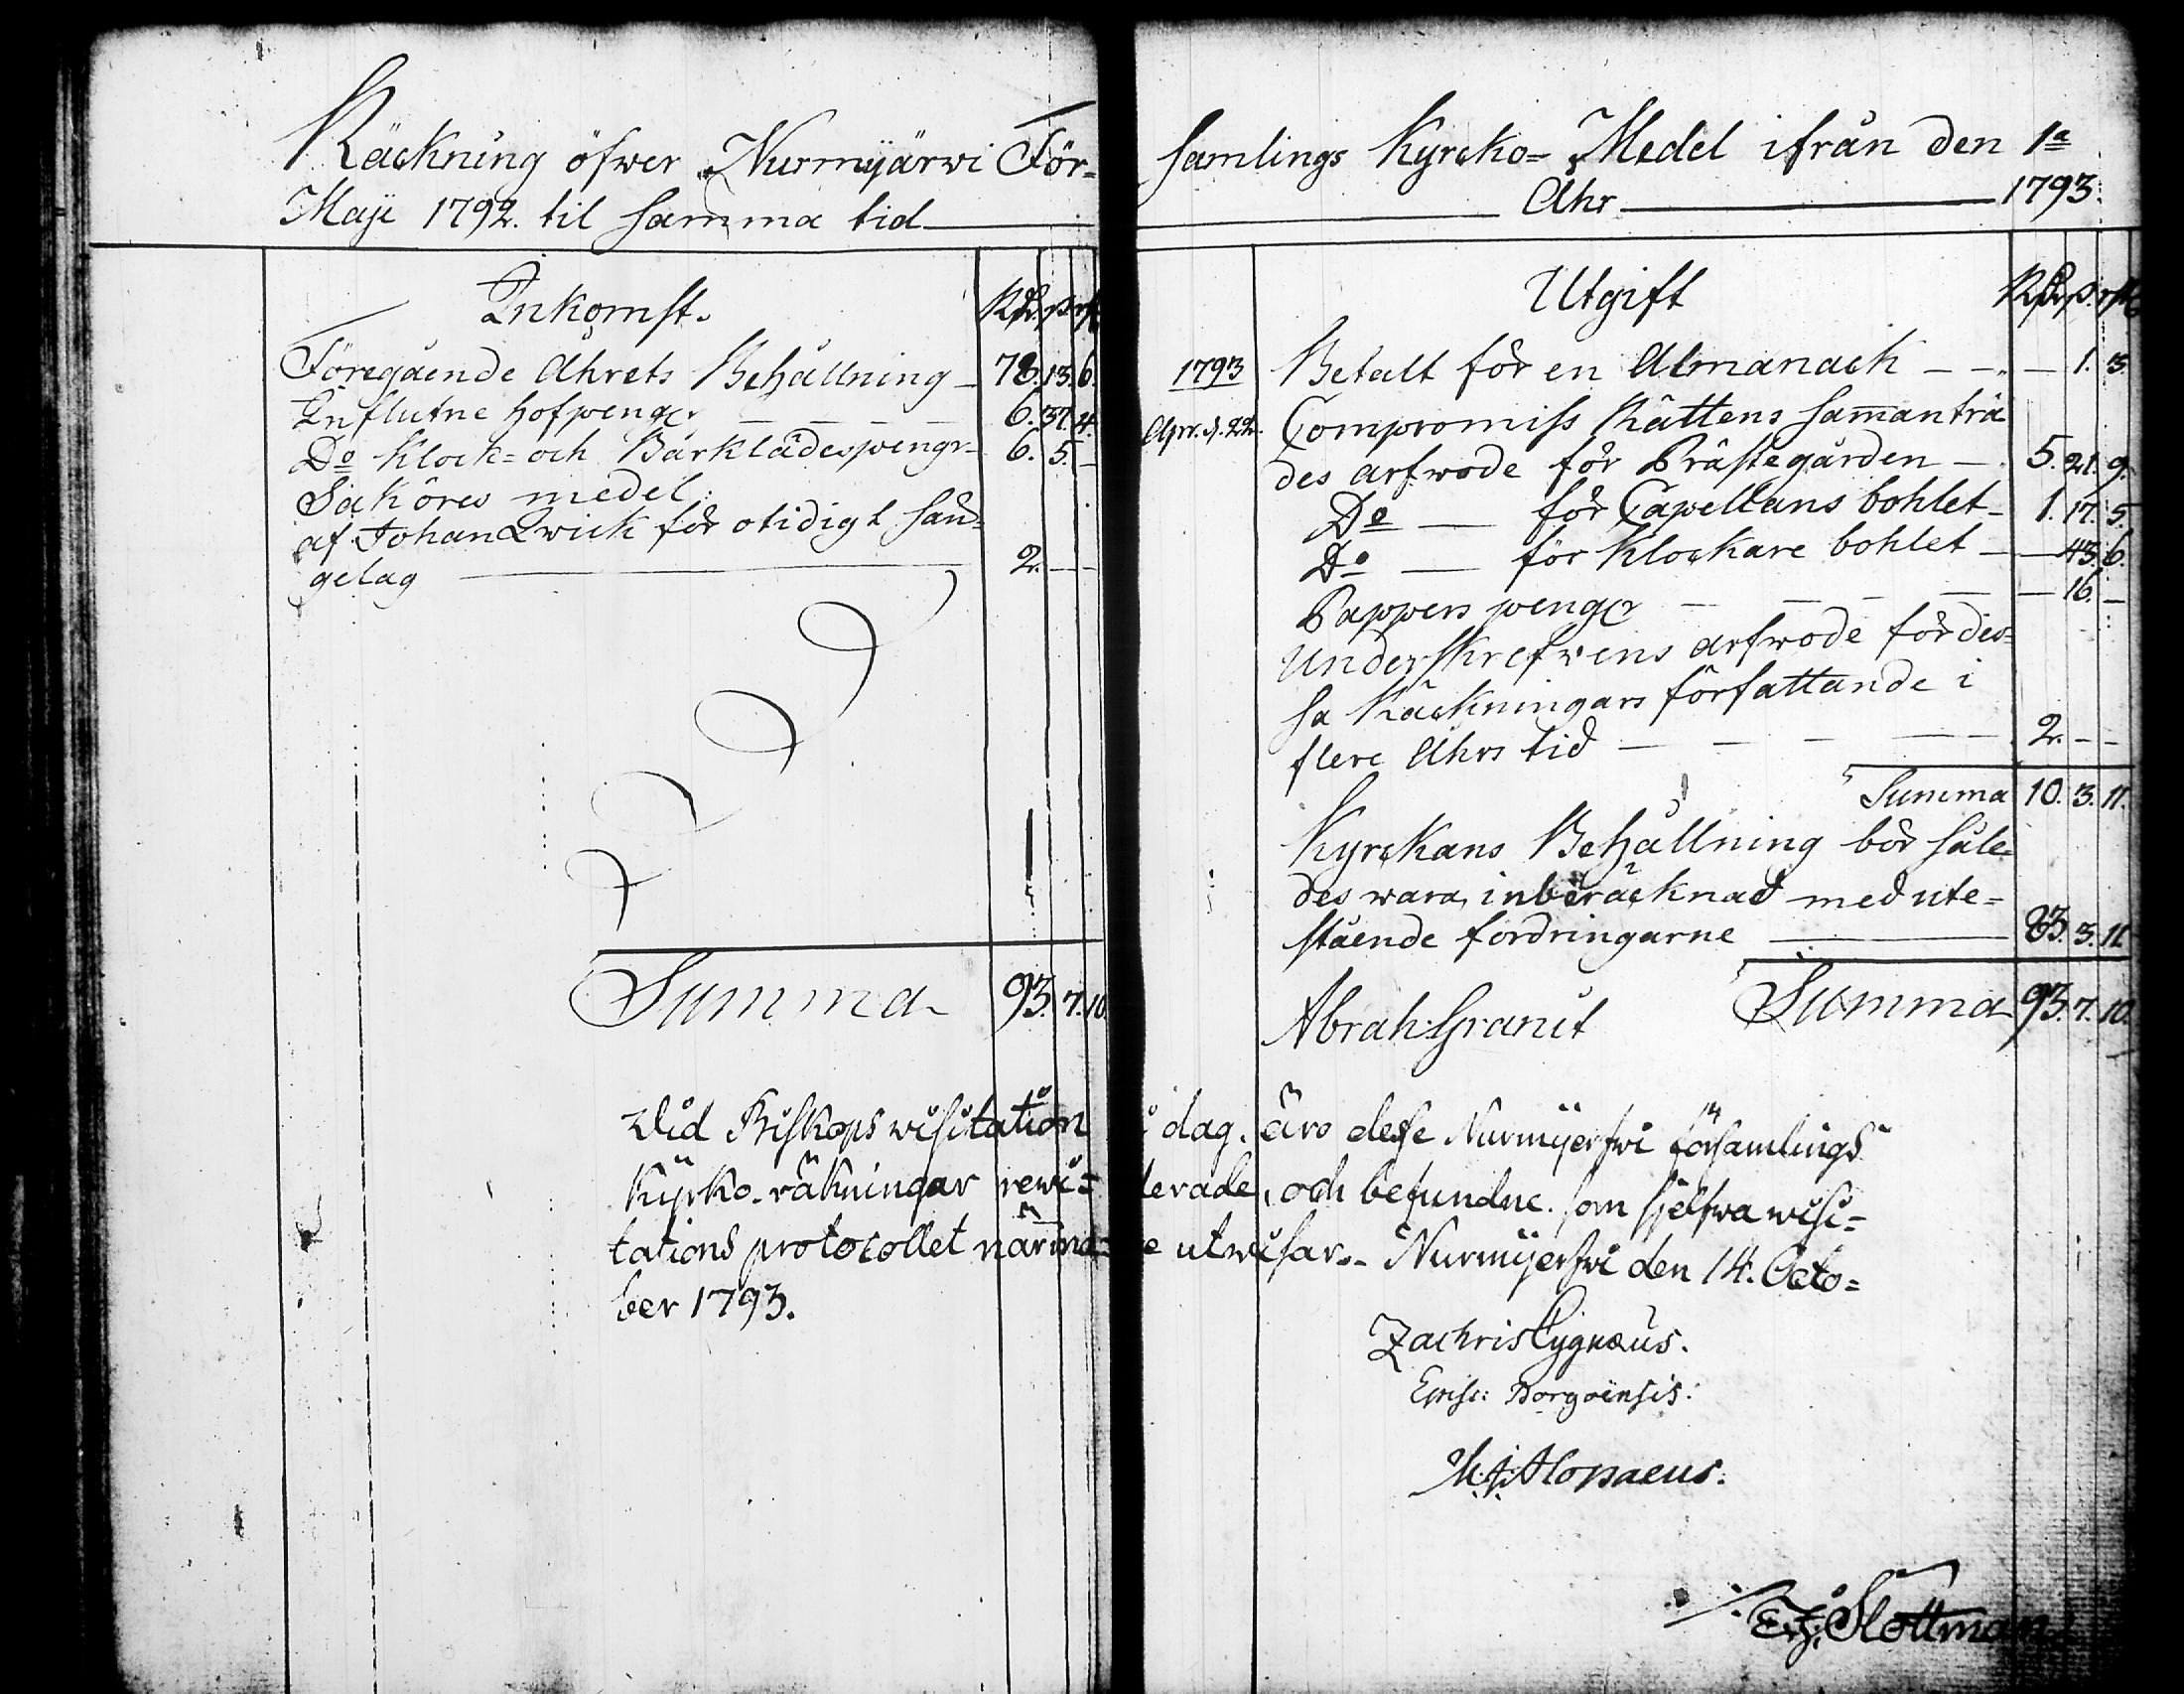 Räckning öfwer Nurmijärwi För-
Maji 1792. til samma tid
Inkomst.
Rdr. ß. rst.
Föregående Åhrets Behållning 78. 13. 6.
Influtne hofpengr 6. 37. 4.
Do Klock= och Bårklädespengr 6. 5. -
Saköres medel:
af Johan Qwick för otidigt sån=
gelag 2. - -
Summa 93. 7. 10.
samlings Kyrcko= Medel ifrån den 1a
Åhr 1793.
Utgift
Rdr. ß. rst.
1793 Betalt för en Almanach - 1. 3.
Apr. d. 22. Compromiss Rättens samanträ
des arfwode för Prästegården 5. 21. 9.
Do för Capellans bohlet 1. 17. 5.
Do för Klockare bohlet - 43. 6.
Pappers pengr - 16. -
Underskrefwens arfwode för des=
sa Räckningars författande i
flere Åhrs tid 2. - -
Summa 10. 3. 11.
Kyrckans Behållning bör såle=
des wara, inberäcknad med ute=
stående fordringarne 83. 3. 11.
Summa 93. 7. 10.
Abrah: Granit
Wid Biskops wisitation i dag, äro desse Nurmijerfwi församlings
Kyrko-räkningar rewi=derade, och befundne som sjelfwa wisi=
tations protocollet närmare utwisar. Nurmijerfwi den 14. Octo=
ber 1793.
Zachris Cygnæus.
Episc: Borgoënsis.
M. J. Alopaeus.
E. J. Slottman